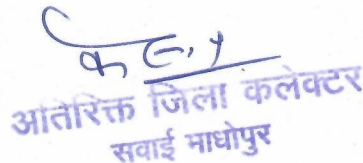 अतिरिक्त जिला कलेक्टर
सवाई माधोपुर